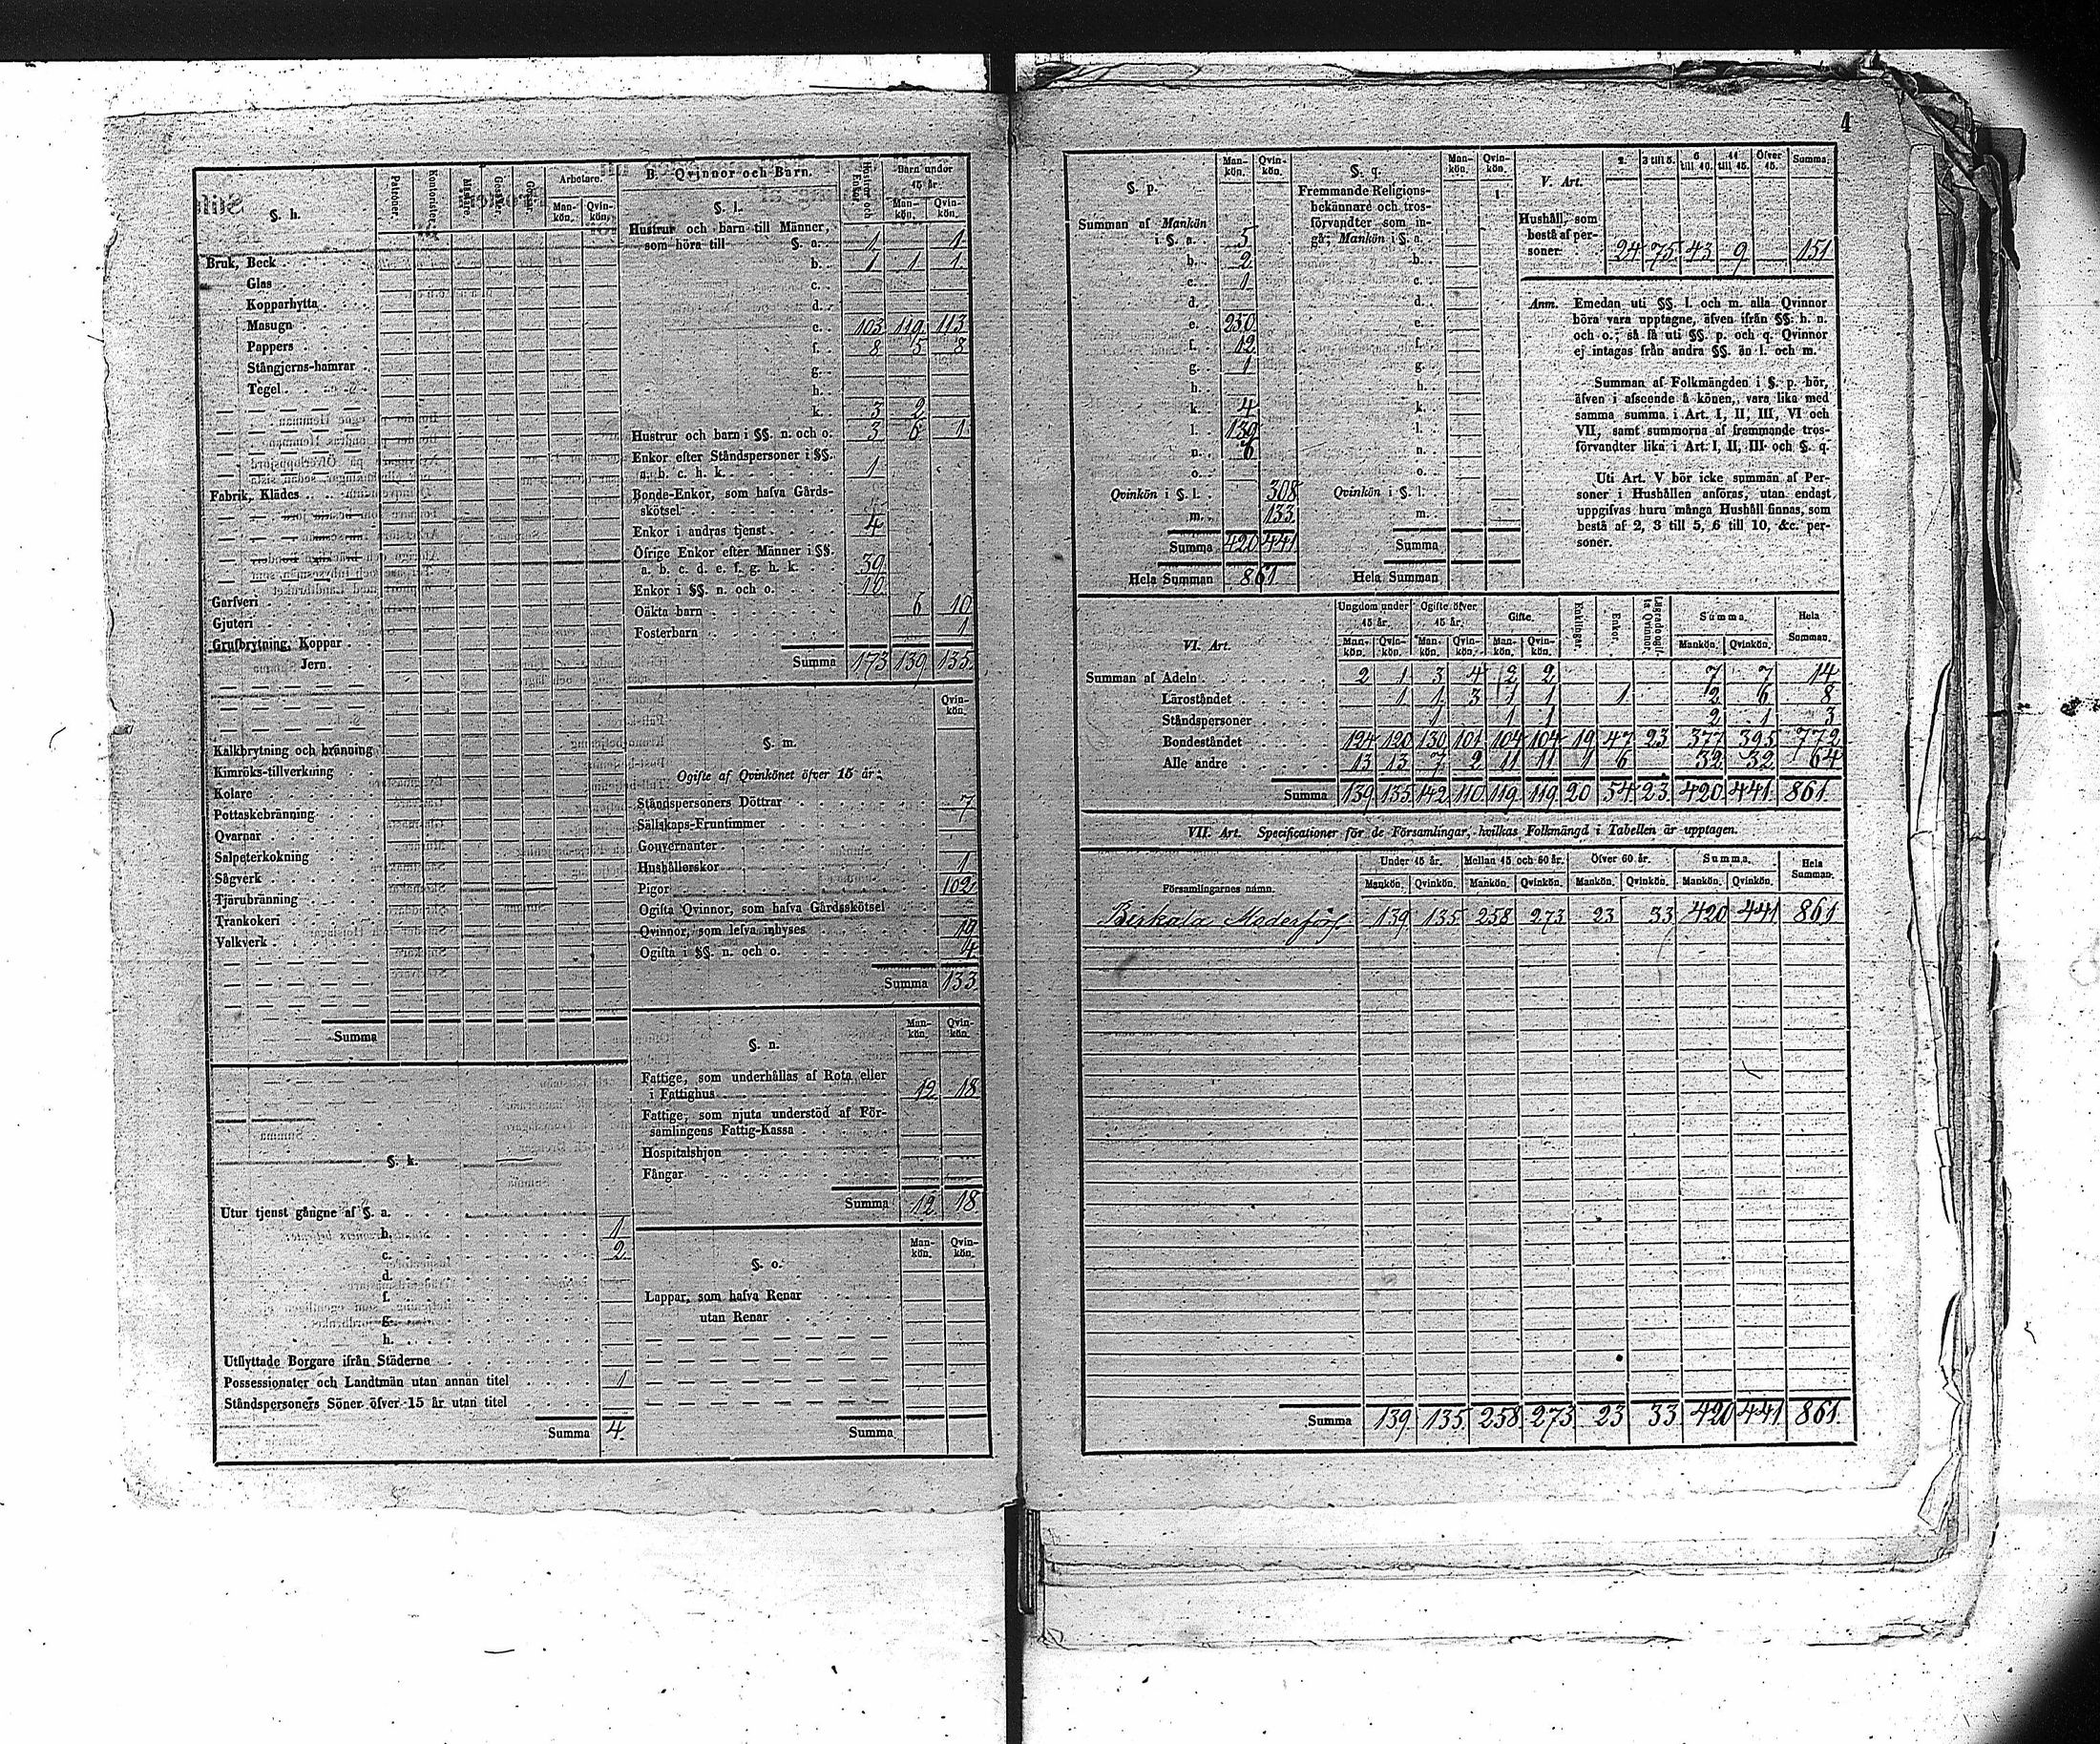 §. h.
Patroner.
Kontorister.
Mästare.
Gesäller.
Gossar.
Arbetare.
Man-kön.
Qvin-kön.
Bruk, Beck
Glas
Kopparhytta
Masugn
Pappers
Stångjerns-hamrar
Tegel
Fabrik, Klädes
Garfveri
Gjuteri
Grufbrytning, Koppar
Jern
Kalkbrytning och bränning
Kimröks-tillverkning
Kolare
Pottaskebränning
Qvarnar
Salpeterkokning
Sågverk
Tjärubränning
Trankokeri
Valkverk
Summa
§. k.
Utur tjenst gångne af §. a.
b. 1
c. 2
d.
f.
g.
h.
Utflyttade Borgare ifrån Städerne
Possessionater och Landtmän utan annan titel 1
Ståndspersoners Söner öfver 15 år utan titel
Summa 4.
B. Qvinnor och Barn.
Hustrur och Enkor
Barn under 15 år.
Man-kön.
Qvin-kön.
§. l.
Hustrur och barn till Männer,
som höra till §. a. 1 1
b. 1 1 1
c.
d.
e. 103 119 113
f. 8 5 8
g.
h.
k. 3 2
Hustrur och barn i §§. n. och o. 3 6 1
Enkor efter Ståndspersoner i §§.
a. b. c. h. k. 1
Bonde-Enkor, som hafva Gårds-
skötsel
Enkor i andras tjenst 4
Öfrige Enkor efter Männer i §§.
a. b. c. d. e. f. g. h. k. 39
Enkor i §§. n. och o. 10
Oäkta barn 6 10
Fosterbarn 1
Summa 173 139 135
Qvin-kön.
§. m.
Ogifte af Qvinkönet öfver 15 år:
Ståndspersoners Döttrar 7
Sällskaps-Fruntimmer
Gouvernanter
Hushållerskor 1
Pigor 102
Ogifta Qvinnor, som hafva Gårdsskötsel
Qvinnor, som lefva inhyses 19
Ogifta i §§. n. och o. 4
Summa 133
Man-kön.
Qvin-kön.
§. n.
Fattige, som underhållas af Rota eller
i Fattighus 12 18
Fattige, som njuta understöd af För-
samlingens Fattig-Kassa
Hospitalshjon
Fångar
Summa 12 18
Man-kön.
Qvin-kön.
§. o.
Lappar, som hafva Renar
utan Renar
Summa
4
§. p.
Man-kön.
Qvin-kön.
Summan af Mankön
i §. a. 5
b. 2
c. 1
d.
e. 250
f. 12
g. 1
h.
k. 4
l. 139
n. 6
o.
Qvinkön i §. l. 308
m. 133
Summa 420 441
Hela Summan 861
§. q.
Man-kön.
Qvin-kön.
Fremmande Religions-
bekännare och tros-
förvandter som in-
gå; Mankön i §. a.
b.
c.
d.
e.
f.
g.
h.
k.
l.
n.
o.
Qvinkön i §. l.
m.
Summa
Hela Summan
V. Art.
2.
3 till 5.
6 till 10.
11 till 15.
Öfver 15.
Summa.
Hushåll, som
bestå af per-
soner 24 75 43 9 151
Anm. Emedan uti §§. l. och m. alla Qvinnor
böra vara upptagne, äfven ifrån §§. h. n.
och o.; så få uti §§. p. och q. Qvinnor
ej intagas från andra §§. än l. och m.
Summan af Folkmängden i §. p. bör,
äfven i afseende å könen, vara lika med
samma summa i Art. I, II, III, VI och
VII, samt summorna af fremmande tros-
förvandter lika i Art. I, II, III och §. q.
Uti Art. V bör icke summan af Per-
soner i Hushållen anföras, utan endast
uppgifvas huru många Hushåll finnas, som
bestå af 2, 3 till 5, 6 till 10, &c. per-
soner.
VI. Art.
Ungdom under 15 år.
Ogifte öfver 15 år.
Gifte.
Enklingar.
Enkor.
Lägrade ogifta Qvinnor.
Summa.
Hela Summan.
Man-kön. Qvin-kön. Man-kön. Qvin-kön. Man-kön. Qvin-kön. Mankön. Qvinkön.
Summan af Adeln 2 1 3 4 2 2 7 7 14
Läroståndet 1 1 3 1 1 1 2 6 8
Ståndspersoner 1 1 1 2 1 3
Bondeståndet 124 120 130 101 104 104 19 47 23 377 395 772
Alle andre 13 13 7 2 11 11 1 6 32 32 64
Summa 139 135 142 110 119 119 20 54 23 420 441 861
VII. Art. Specificationer för de Församlingar, hvilkas Folkmängd i Tabellen är upptagen.
Församlingarnes namn.
Under 15 år.
Mellan 15 och 60 år.
Öfver 60 år.
Summa.
Hela Summan.
Mankön. Qvinkön. Mankön. Qvinkön. Mankön. Qvinkön. Mankön. Qvinkön.
Birkala Moderförs. 139 135 258 273 23 33 420 441 861
Summa 139. 135. 258 273 23 33 420 441 861.